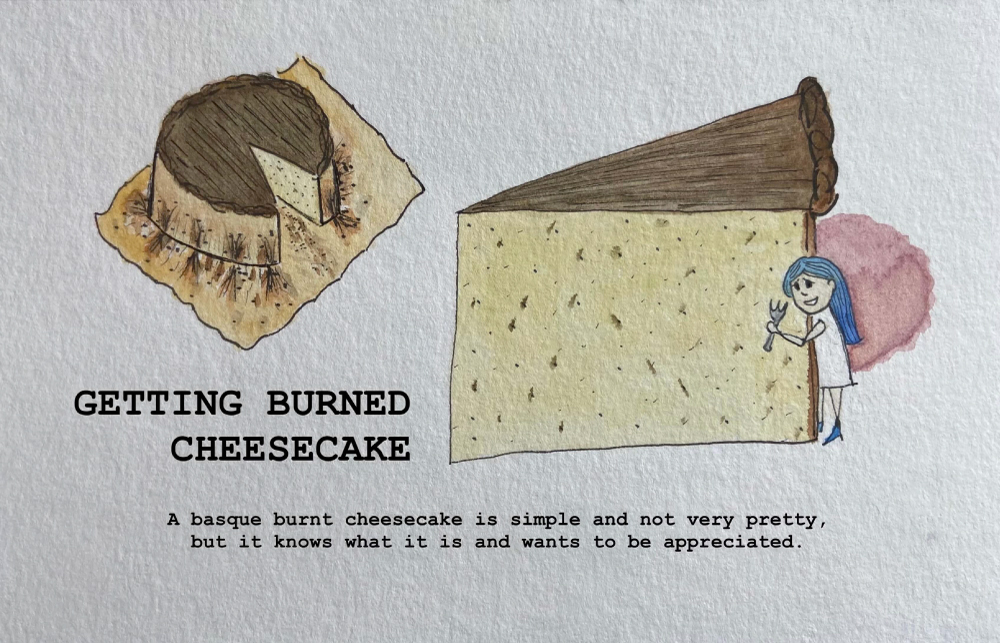 GETTING BURNED
CHEESECAKE
A basque burnt cheesecake is simple and not very pretty,
but it knows what it is and wants to be appreciated.